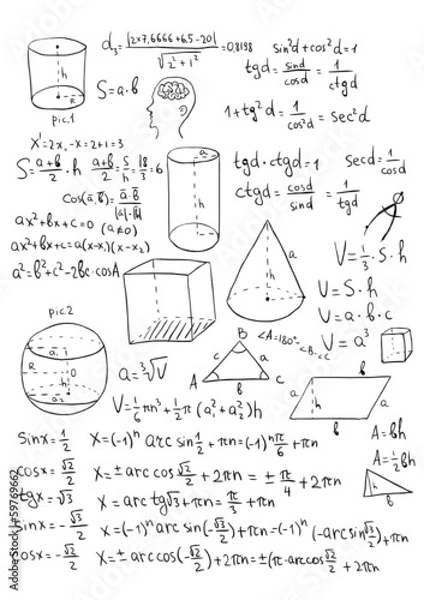 d₃ = |2×7,6666+6,5-20| / √(2²+1²) = 0,8198
sin²α+cos²α=1
tgα = sinα/cosα = 1/ctgα
h
R
pic.1
S=a·b
1+tg²α = 1/cos²α = sec²α
X'=2x₀-x=2+1=3
S= (a+b)/2 · h  (a+b)/2 = S/h = 18/3 = 6
a
h
tgα·ctgα=1  secα= 1/cosα
cos(a,b)= a·b / |a|·|b|
ctgα = cosα/sinα = 1/tgα
ax²+bx+c=0 (a≠0)
ax²+bx+c=a(x-x₁)(x-x₂)
a²=b²+c²-2bc·cosA
h
a
V= 1/3 ·S·h
V=S·h
V=a·b·c
V=a³
pic.2
a₁
R
O
h
a₂
a=³√V
B
c
a
A
b
C
∠A=180°-∠B-∠C
b
a
h
a
b
V= 1/6 πh³+ 1/2 π(a₁²+a₂²)h
A=bh
A= 1/2 bh
h
b
sinx= 1/2  X=(-1)ⁿ arc sin 1/2 +πn=(-1)ⁿ π/6 +πn
cosx= √2/2  X=± arc cos √2/2 +2πn = ± π/4 +2πn
tgx=√3  X= arc tg√3+πn= π/3 +πn
sinx=- √3/2  X=(-1)ⁿ arc sin(- √3/2)+πn=(-1)ⁿ(-arc sin √3/2)+πn
osx=- √2/2  X=± arccos(- √2/2)+2πn=±(π-arccos √2/2 +2πn
Adobe Stock | #59769662
Adobe Stock